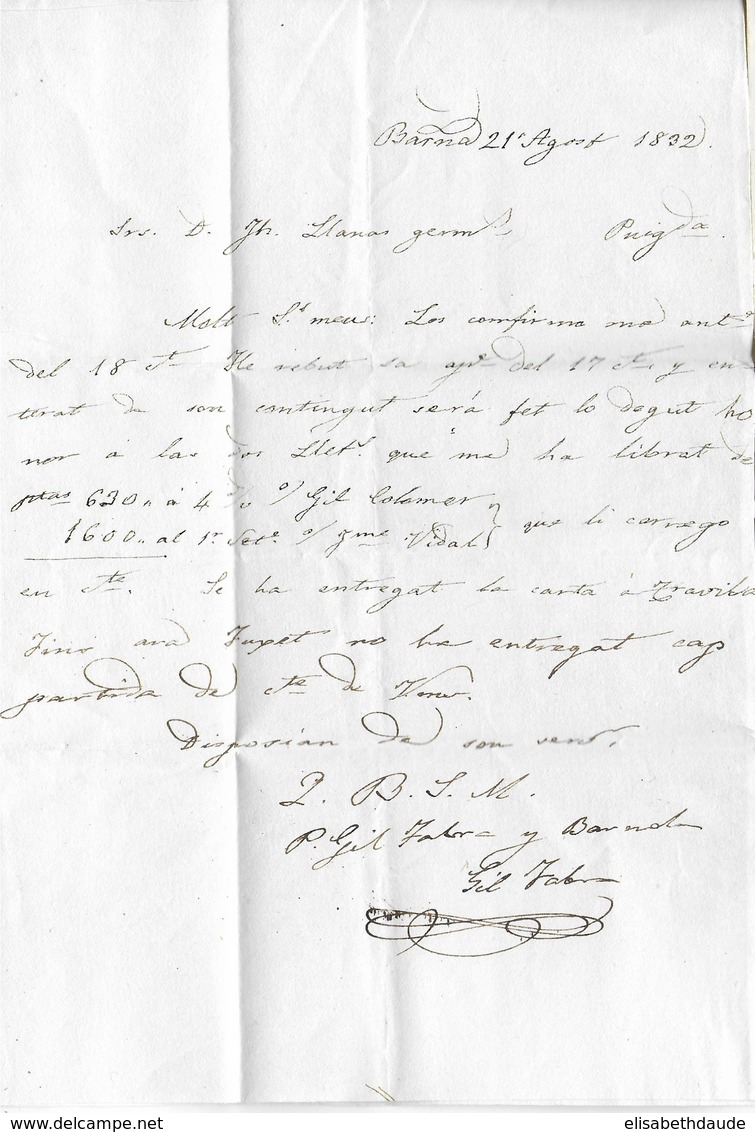 Barna 21 Agost 1832.
Srs. D. Jh. Llanas germs, Puigda.
Molt Srs meus: Los comfirmo ma antr
del 18 cte. He rebut sa apr. del 17 cte, y en-
terat de son contingut será fet lo degut ho
nor á las dos Llets. que me ha librat de
ptas 630,, á 4 d/v o/ Gil Colomer,
1600,, al 1r. Sete. o/ Jme Vidal } que li carrego
en cte. Se ha entregat la carta á
Fins ara Fuxet no ha entregat cap
partida de cte de
Disposian de son
Q. B. S. M.
P. Gil Fabra y
Gil Fabra
elisabethdaude
www.delcampe.net